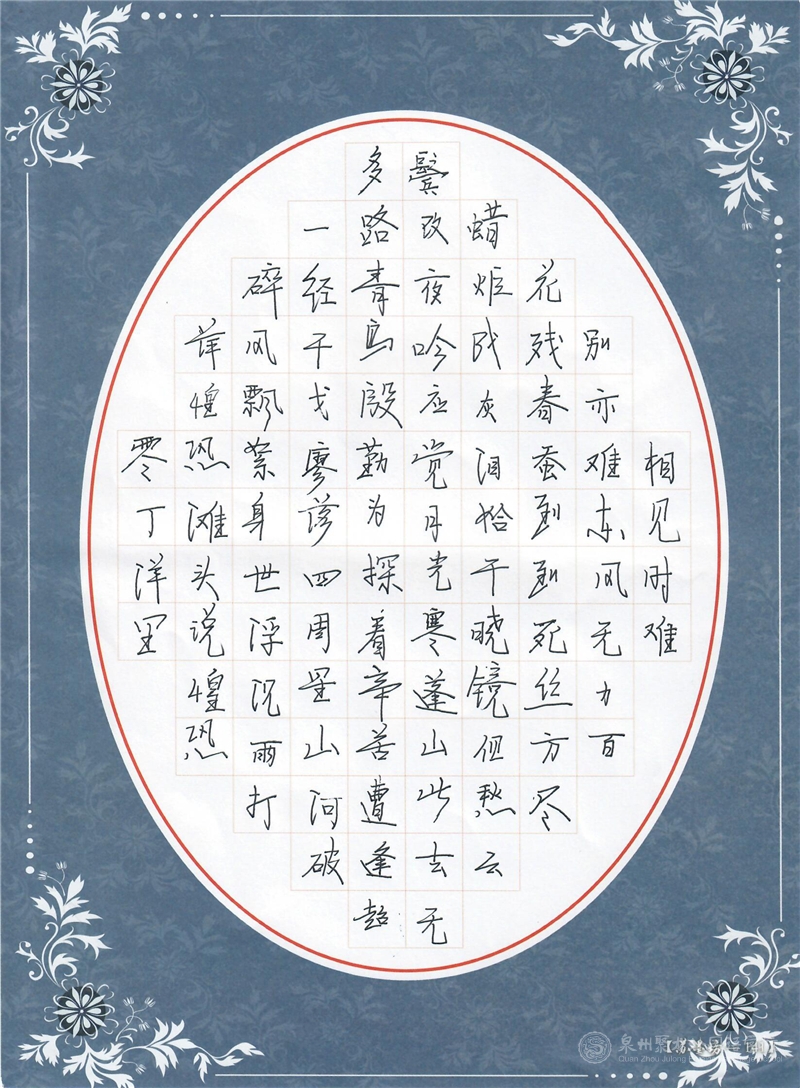 相见时难
别亦难东风无力百
花残春蚕到到死丝方尽
蜡炬成灰泪拾干晓镜但愁云
鬓改夜吟应觉月光寒蓬山此去无
多路青鸟殷勤为探着帝苦遭逢起
一经干戈寥落四周星山河破
碎风飘絮身世浮沉雨打
萍惶恐滩头说惶恐
零丁洋里
泉州聚
Quan Zhou Julong